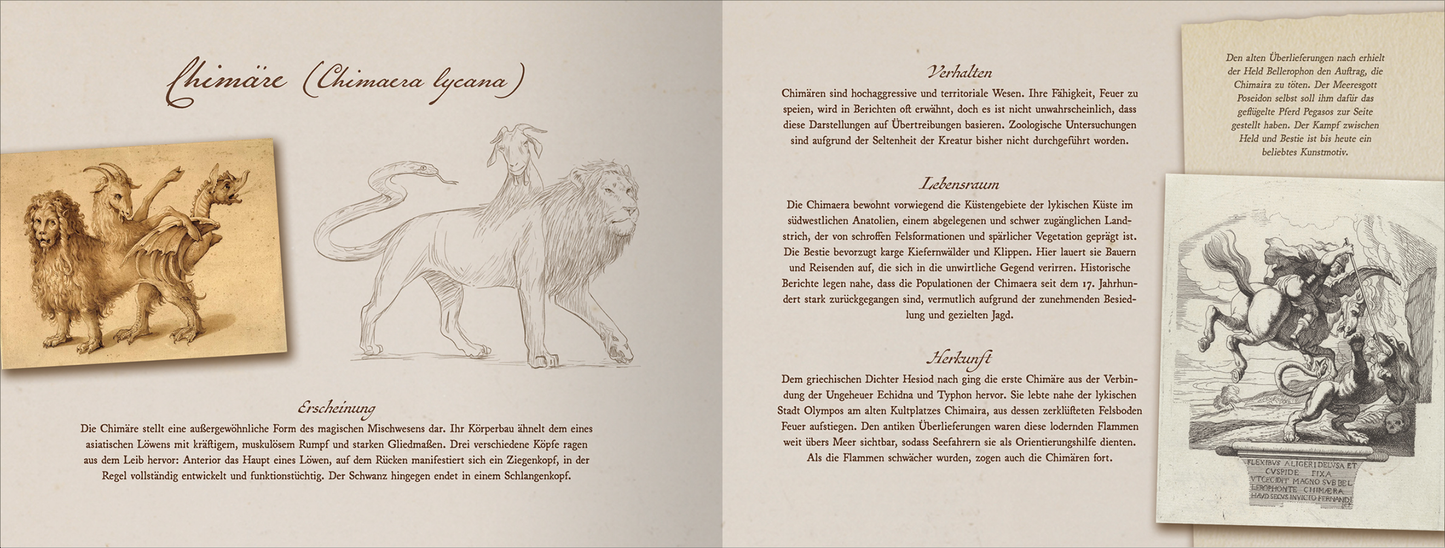 Chimäre (Chimaera lycana)
Erscheinung
Die Chimäre stellt eine außergewöhnliche Form des magischen Mischwesens dar. Ihr Körperbau ähnelt dem eines
asiatischen Löwens mit kräftigem, muskulösem Rumpf und starken Gliedmaßen. Drei verschiedene Köpfe ragen
aus dem Leib hervor: Anterior das Haupt eines Löwen, auf dem Rücken manifestiert sich ein Ziegenkopf, in der
Regel vollständig entwickelt und funktionstüchtig. Der Schwanz hingegen endet in einem Schlangenkopf.
Verhalten
Chimären sind hochaggressive und territoriale Wesen. Ihre Fähigkeit, Feuer zu
speien, wird in Berichten oft erwähnt, doch es ist nicht unwahrscheinlich, dass
diese Darstellungen auf Übertreibungen basieren. Zoologische Untersuchungen
sind aufgrund der Seltenheit der Kreatur bisher nicht durchgeführt worden.
Lebensraum
Die Chimaera bewohnt vorwiegend die Küstengebiete der lykischen Küste im
südwestlichen Anatolien, einem abgelegenen und schwer zugänglichen Land-
strich, der von schroffen Felsformationen und spärlicher Vegetation geprägt ist.
Die Bestie bevorzugt karge Kiefernwälder und Klippen. Hier lauert sie Bauern
und Reisenden auf, die sich in die unwirtliche Gegend verirren. Historische
Berichte legen nahe, dass die Populationen der Chimaera seit dem 17. Jahrhun-
dert stark zurückgegangen sind, vermutlich aufgrund der zunehmenden Besied-
lung und gezielten Jagd.
Herkunft
Dem griechischen Dichter Hesiod nach ging die erste Chimäre aus der Verbin-
dung der Ungeheuer Echidna und Typhon hervor. Sie lebte nahe der lykischen
Stadt Olympos am alten Kultplatzes Chimaira, aus dessen zerklüfteten Felsboden
Feuer aufstiegen. Den antiken Überlieferungen waren diese lodernden Flammen
weit übers Meer sichtbar, sodass Seefahrern sie als Orientierungshilfe dienten.
Als die Flammen schwächer wurden, zogen auch die Chimären fort.
Den alten Überlieferungen nach erhielt
der Held Bellerophon den Auftrag, die
Chimaira zu töten. Der Meeresgott
Poseidon selbst soll ihm dafür das
geflügelte Pferd Pegasos zur Seite
gestellt haben. Der Kampf zwischen
Held und Bestie ist bis heute ein
beliebtes Kunstmotiv.
FLEXIBUS ALIGERI DELUSA ET
CUSPIDE FIXA
VT CECIDIT MAGNO SVB BEL
LEROPHONTE CHIMÆRA
HAUD SECUS INVICTO FERNAND